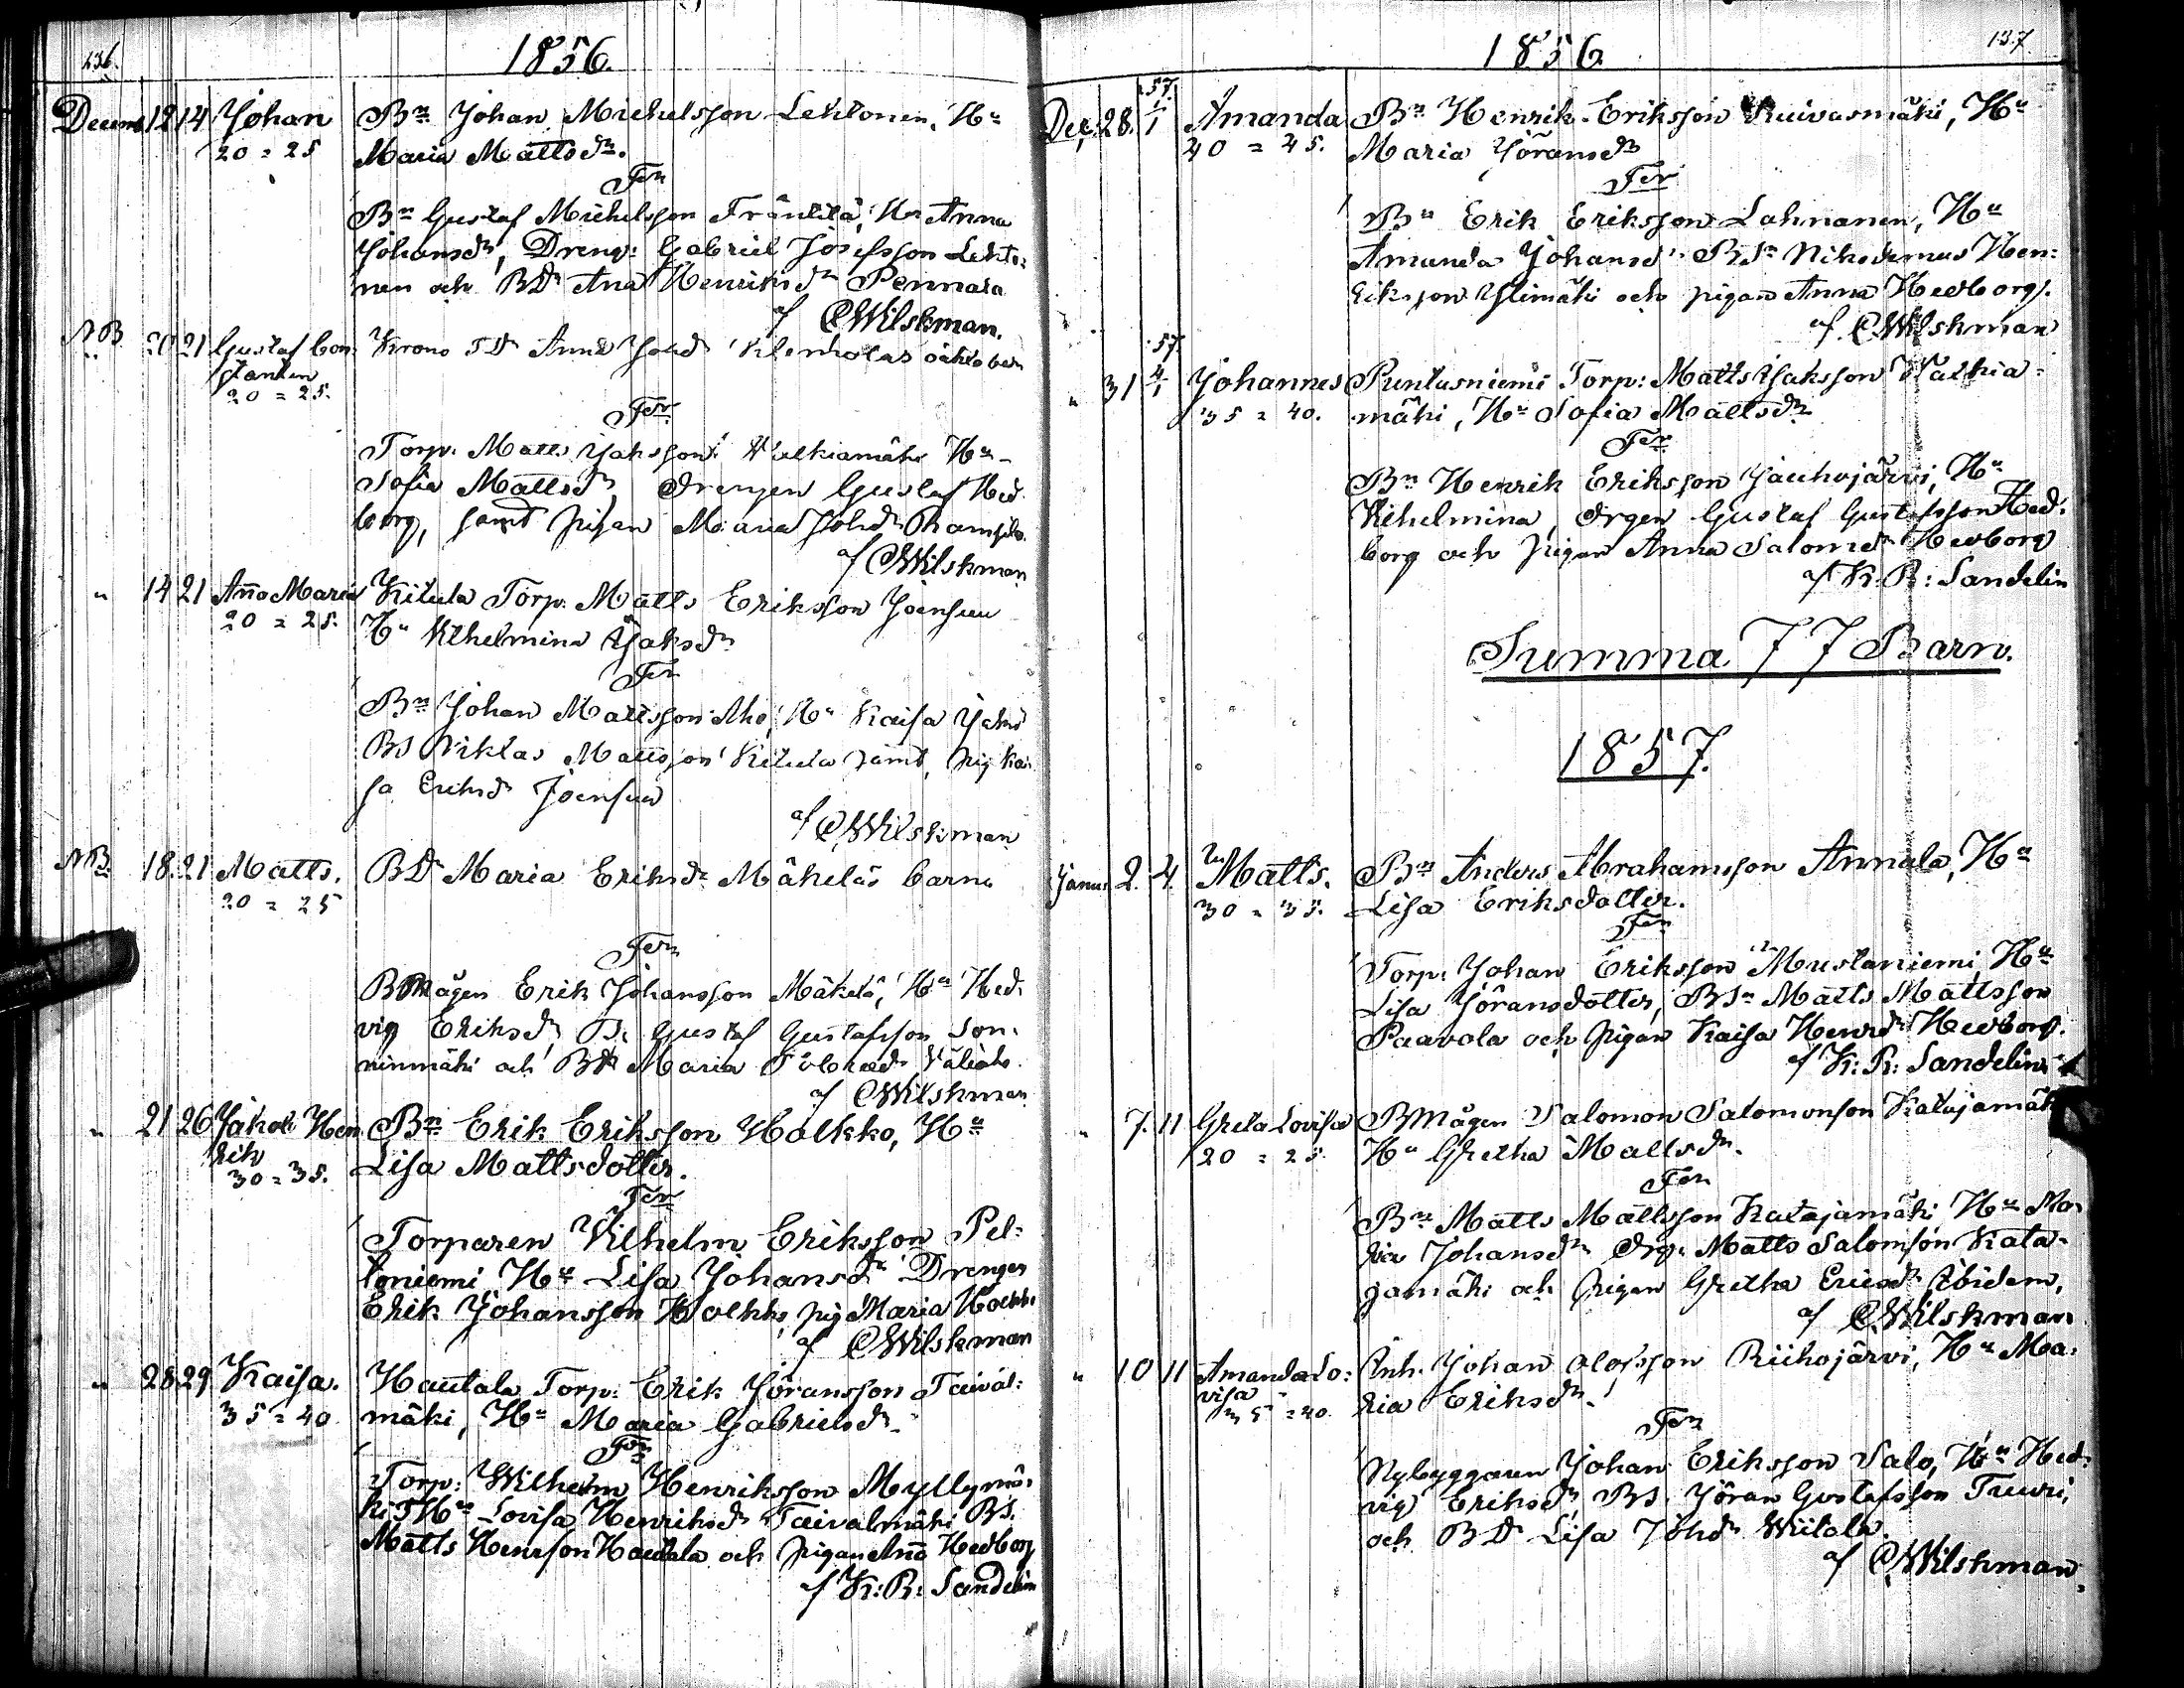 136.
1856.
Decemb 12 14 Johan Bn Johan Michelsson Lehtonen, Hu
20 = 25 Maria Mattsdr.
Fer
Bn Gustaf Michelsson Fräntilä, Hu Anna
Johansdr, Dreng: Gabriel Josefsson Lehto-
nen och BDr Ana Henriksdr Pennala
af CWilskman.
NB 20 21 Gustaf Con- Krono TDr Anna Johdr
stantin
20 = 25.
Fer
Torp. Matts Jaksson Walkiamäki Hu
Sofia Mattsdr, Drengen Gustaf Hed-
borg, samt pigan Maria Johdr
af CWilskman
" 14 21 Anna Maria Kitula Torp. Matts Eriksson Joensuu
20 = 25. Hu Wilhelmina Jaksdr
Fer
Bn Johan Mattsson Aho, Hu Kaisa Jaksdr
BS Niklas Mattsson Kitula samt pig Kai-
sa Eriksdr Joensuu
af CWilskman
NB. 18. 21 Matts. BDr Maria Eriksdr Mäkeläs barn
20 = 25
Fer
BMågen Erik Johansson Mäkelä, Hu Hed-
vig Eriksdr Gustaf Gustafsson Son-
ninmäki och BDr Maria
af CWilskman
" 21 26 Jakob Hen- Bn Erik Eriksson Holkko, Hu
rik Lisa Mattsdotter.
30 = 35.
Fer
Torparen Wilhelm Eriksson Pel-
toniemi Hu Lisa Johansdr Drengen
Erik Johansson Holkko, pig Maria Holkko
af CWilskman
" 28 29 Kaisa. Hautala Torp: Erik Jöransson Taival-
35 = 40 mäki, Hu Maria Gabrielsdr.
Fer
Torp: Wilhelm Henriksson Myllymä-
ki THu Lovisa Henriksdr Taivalmäki BS.
Matts Henrsson Hautala och pigan Anna Hedborg
af K: R: Sandelin
137.
1856.
57.
Dec. 28. 1/1 Amanda Bn Henrik Eriksson Kuivasmäki, Hu
40 = 45. Maria Jöransdr
Fer
Bn Erik Eriksson Lahnanen, Hu
Amanda Johansdr BSn Nikodemus Hen-
riksson Ylimäki och pigan Anna Hedborg.
af CWilskman
57.
" 31 4/1 Johannes Puntusniemi Torp: Matts Jaksson Walkia-
35 = 40. mäki, Hu Sofia Mattsdr
Fer
Bn Henrik Eriksson Jauhojärvi, Hu
Wilhelmina, drgen Gustaf Gustafsson Hed-
borg och pigan Anna Salomdr Hedborg
af K: R: Sandelin
Summa 77 Barn.
1857.
Janu. 2. 4. Matts. Bn Anders Abrahamsson Annala, Hu
30 = 35. Lisa Eriksdotter.
Fer
Torp: Johan Eriksson Mustaniemi, Hu
Lisa Jöransdotter, BSn Matts Mattsson
Paavola och pigan Kaisa Henrdr Hedborg.
af K: R: Sandelin
" 7. 11 Greta Lovisa BMågen Salomon Salomonson Katajamäki
20 = 25. Hu Gretha Mattsdr.
Fer
Bn Matts Mattsson Katajamäki Hu Ma-
ria Johansdr Drg: Matts Salomson Kata-
jamäki och pigan Gretha Ericsdr Ibidem,
af CWilskman
" 10 11 Amanda Lo- Inh. Johan Olofsson Riihojärvi, Hu Ma-
visa ria Eriksdr.
35 = 40.
Fer
Nybyggaren Johan Eriksson Salo, Hu Hed-
vig Eriksdr, BS. Jöran Gustafsson Tuuri,
och BDr Lisa Johdr Wiitala.
af CWilskman